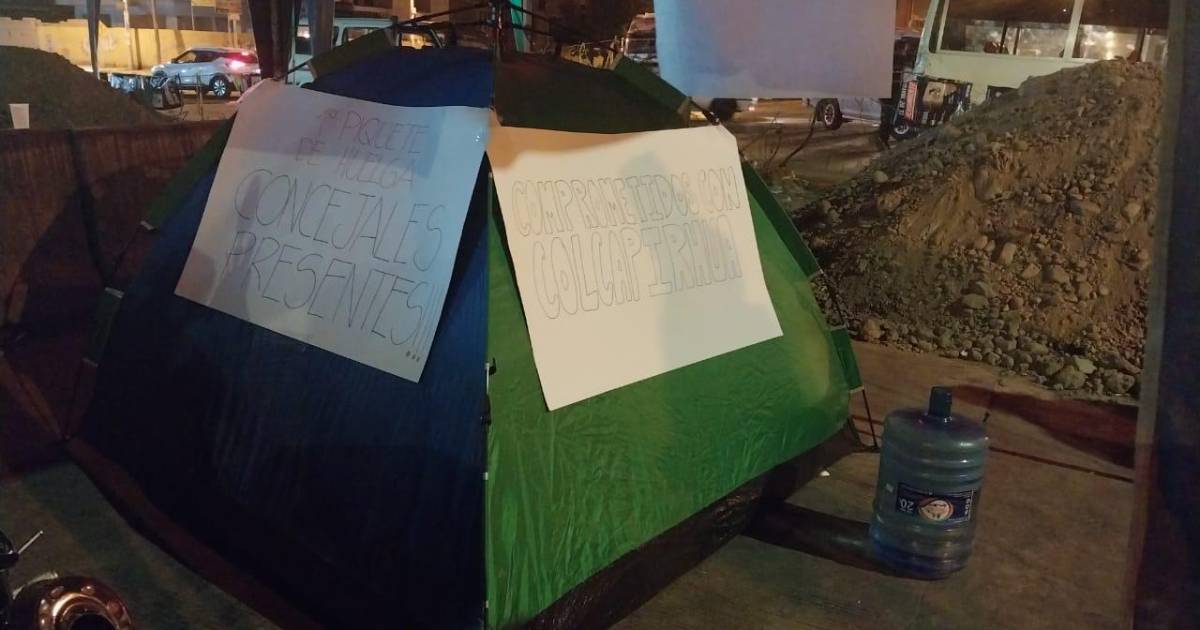 1er PIQUETE
DE HUELGA
CONCEJALES
PRESENTES!!!
COMPROMETIDOS CON
COLCAPIRHUA
20